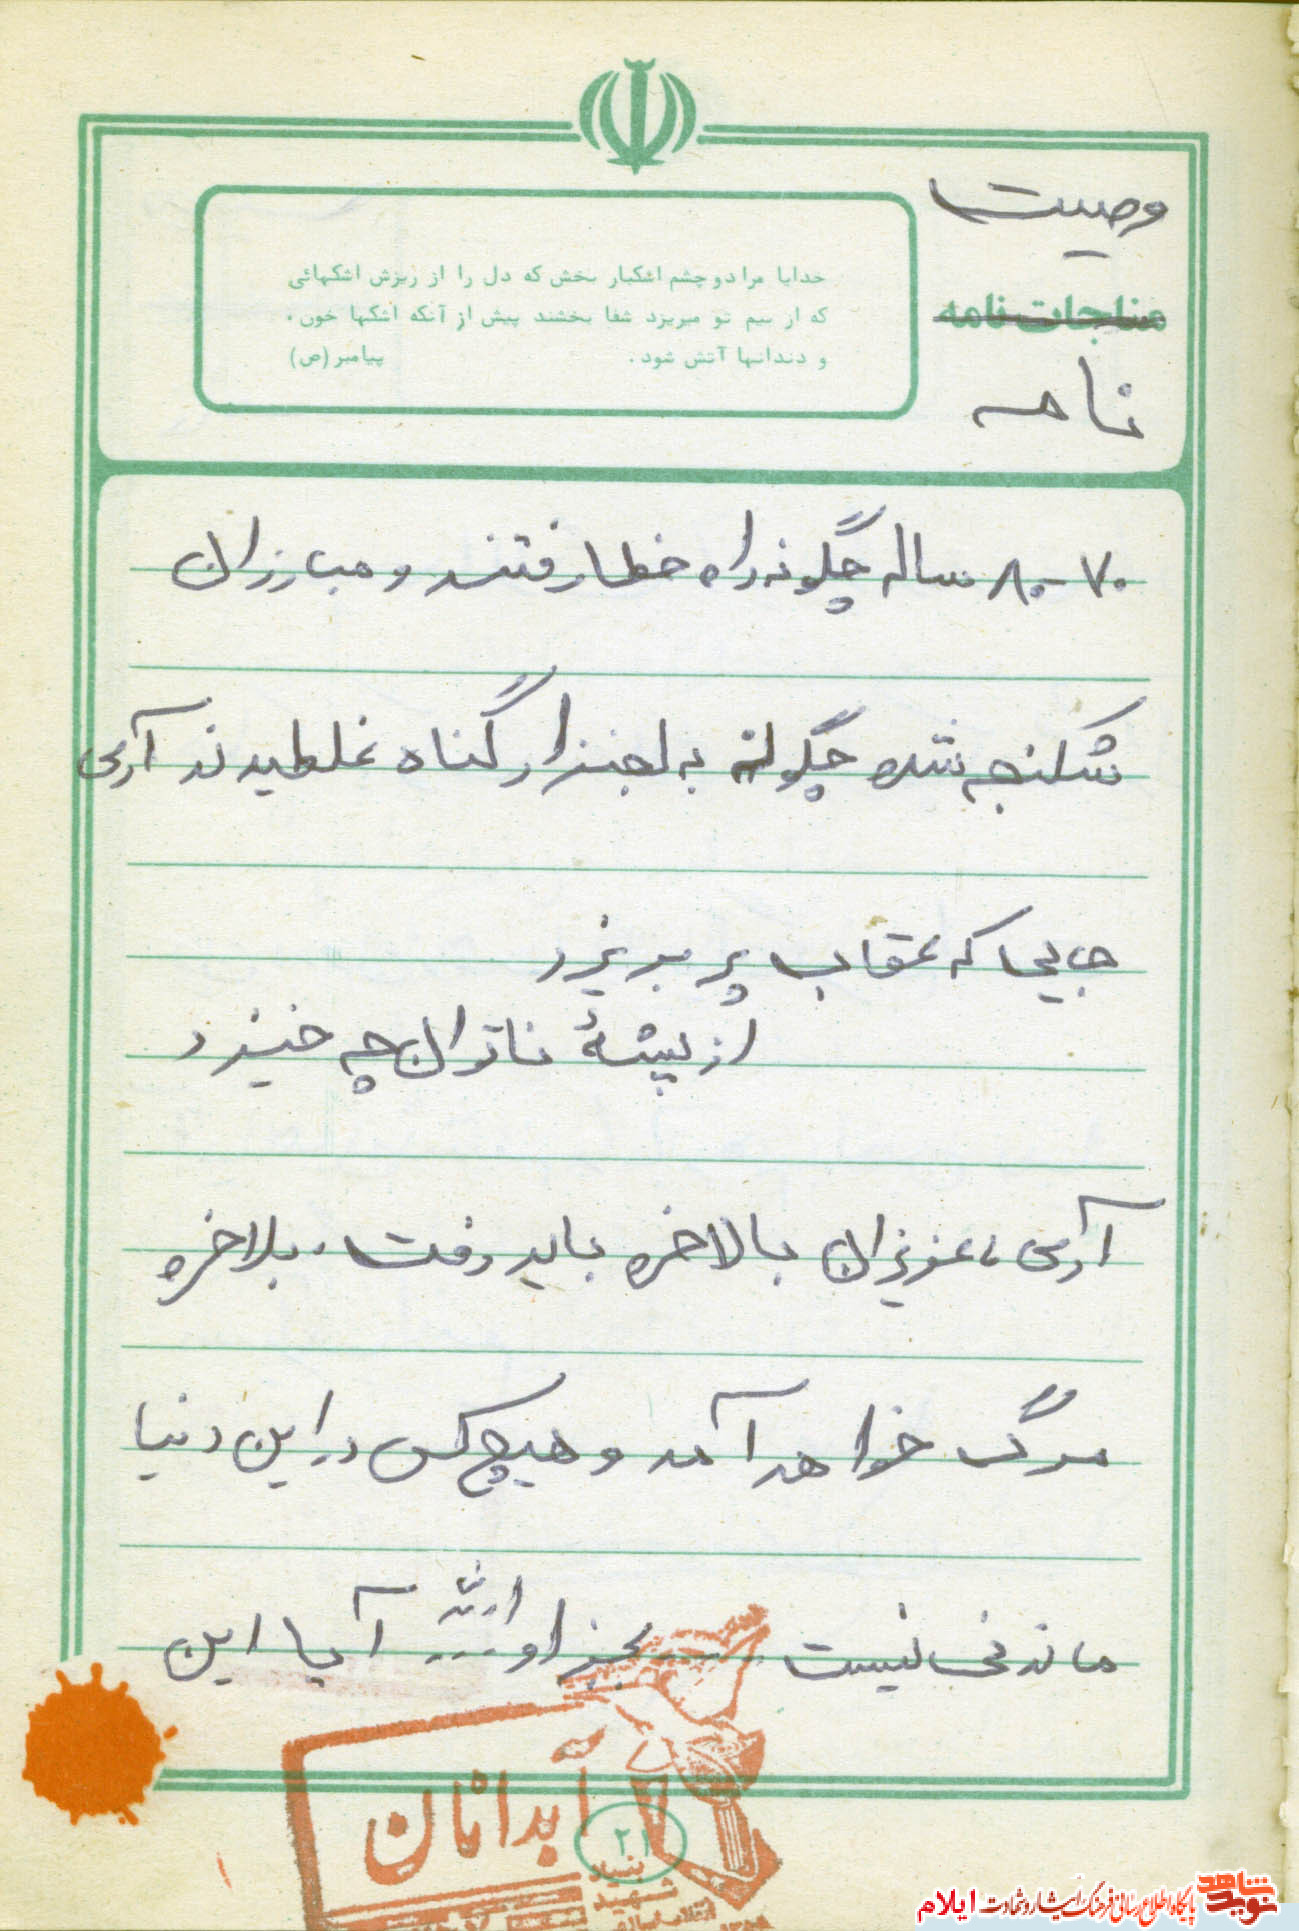 وصیت
مناجات نامه
نامه
خدایا مرا دو چشم اشکبار بخش که دل را از ریزش اشکهائی
که از بیم تو میریزد شفا بخشند پیش از آنکه اشکها خون،
و دندانها آتش شود. پیامبر (ص)
۷۰-۸۰ ساله چگونه راه خطا رفتند و مبارزان
شکنجه شده چگونه به لجنزار گناه غلطیدند آری
جایی که عقاب پر بریزد
از پشهٔ ناتوان چه خیزد
آری، عزیزان بالاخره باید رفت. بلاخره
مرگ خواهد آمد و هیچ کس در این دنیا
ماندنی نیست ..... بجز او ... آیا این
آبدانان
۲۱
بنیاد
شهید
نوید شاهد
پایگاه اطلاع رسانی فرهنگ ایثار و شهادت ایلام